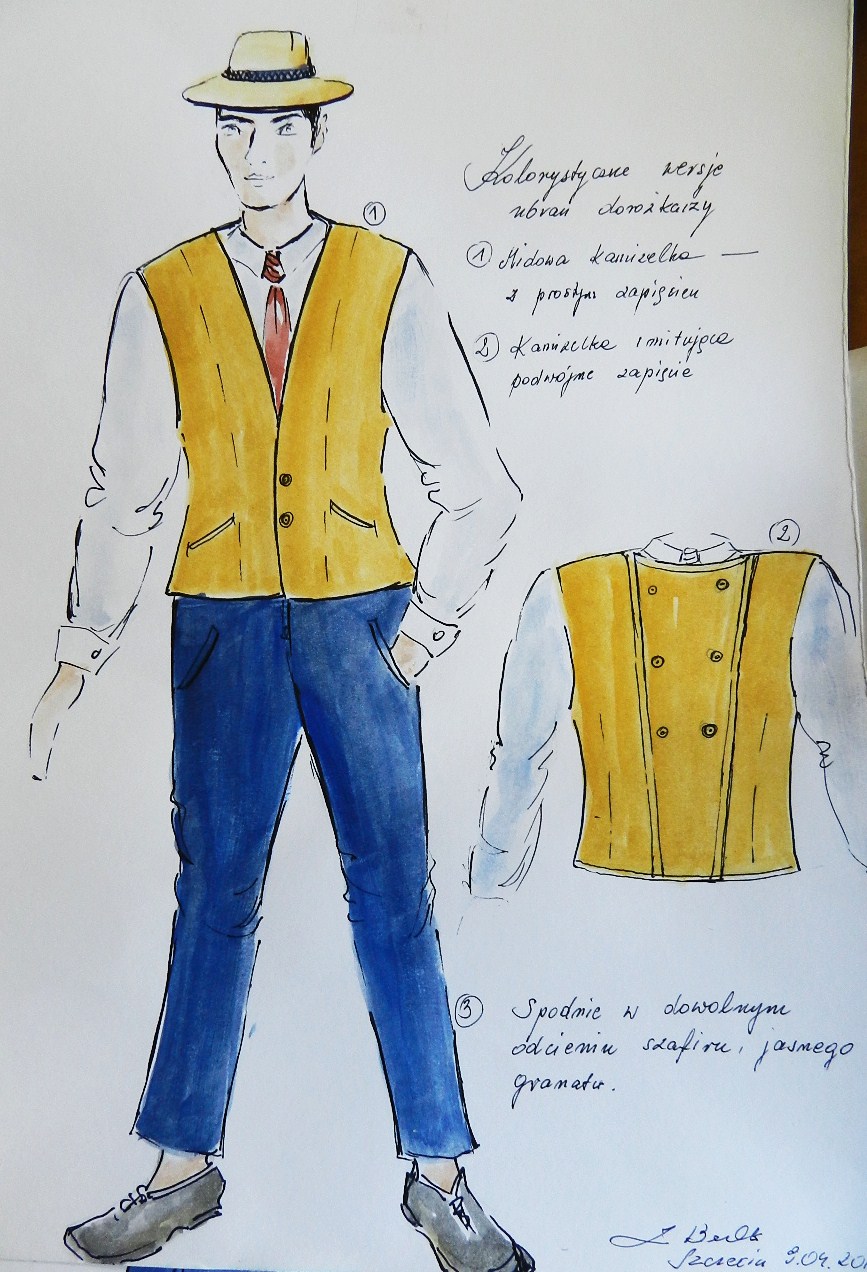 Kolorystyczne wersje
ubrań dorożkarzy
① Miodowa kamizelka —
z prostym zapięciem
② Kamizelka imitująca
podwójne zapięcie
①
②
③ Spodnie w dowolnym
odcieniu szafiru, jasnego
granatu.
Szczecin 9.04.20